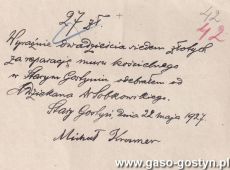 27 zł.
42
42
Wyraźnie dwadzieścia siedem złotych
za reparację muru kościelnego
w Starym Gostyniu odebrałem od
X Dziekana A Sobkowskiego.
Stary Gostyń, dnia 22 maja 1927.
Michał
www.gaso-gostyn.pl